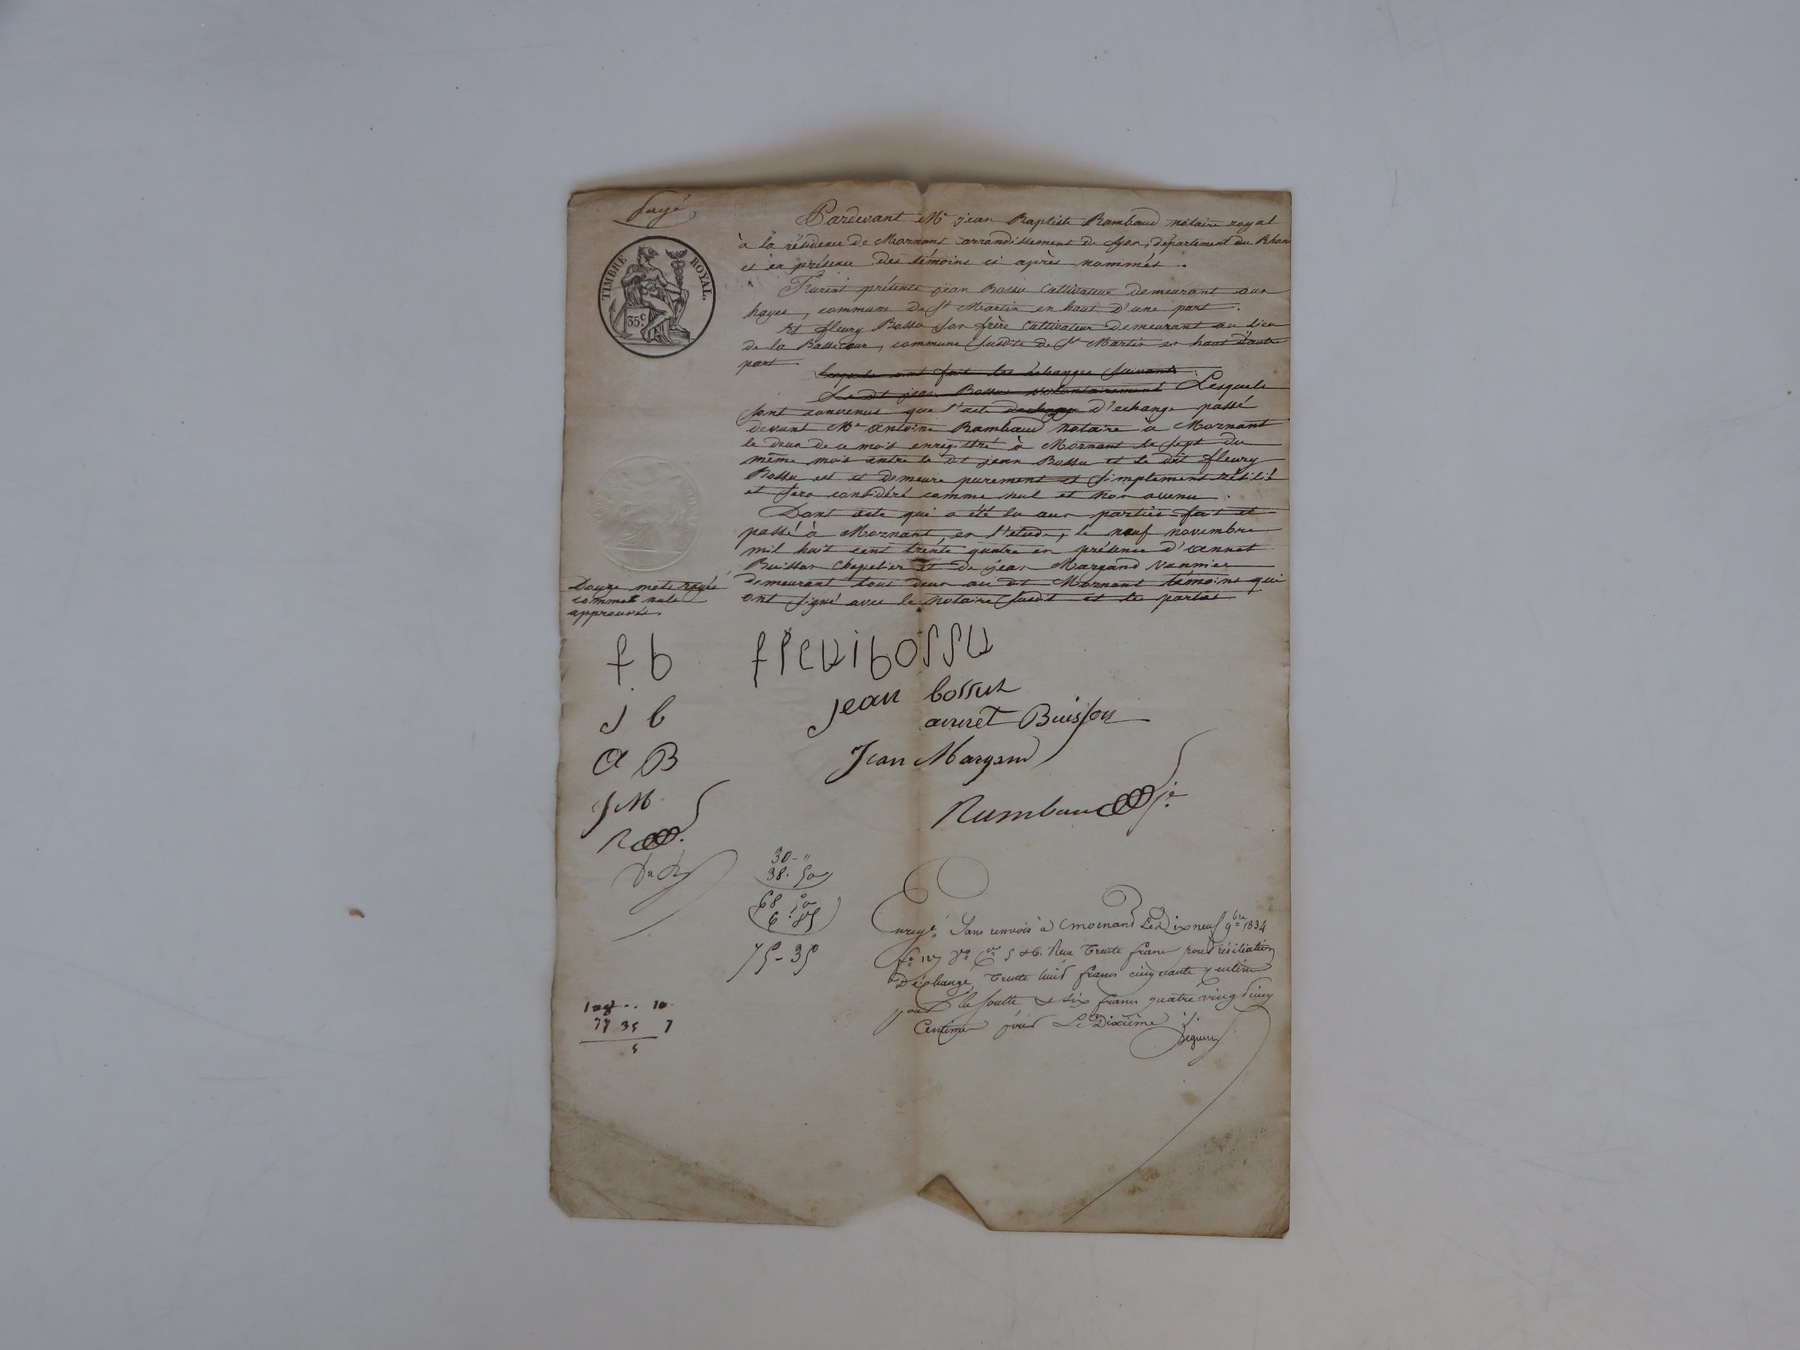 TIMBRE ROYAL.
35c
Pardevant Me jean Baptiste Rambaud notaire royal
à la résidence de Mornant arrondissement de Lyon, département du Rhone
et en présence des témoins ci après nommés.
Furent présents jean Bossu Cultivateur demeurant aux
hayes, commune de St Martin en haut d'une part.
Et fleury Bossu son frère Cultivateur demeurant au lieu
de la Bassecour, commune susdite de St Martin en haut d'autre
part.
Lesquels ont fait les échanges suivants:
Le dit jean Bossu volontairement Lesquels
sont convenus que l'acte dechange d'echange passé
devant Me antoine Rambaud notaire à Mornant
le deux de ce mois enregistré à Mornant le sept du
même mois entre le dit jean Bossu et le dit fleury
Bossu est et demeure purement et simplement résilié
et sera considéré comme nul et non avenu.
Dont acte qui a été lu aux parties fait et
passé à Mornant, en l'étude, le neuf novembre
mil huit cent trente quatre en présence d'annet
Buisson Chapelier et de jean Margand Vannier
demeurant tous deux au dit Mornant témoins qui
ont signé avec le Notaire susdit et les parties
Douze mots rayés
comme nuls
approuvés.
f. b fleuibossu
j b jean bossu
annet Buisson
A B
Jean Margand
J M
Rambaud
R
30-"
38. 50
68 50
6. 85
75-35
Enregé. Sans renvois à Mornant Le Dix neuf 9bre 1834
fo 127 Vo Ces 5 & 6. Reçu Trente francs pour résiliation
D'échange, Trente huit francs cinquante centimes
pour la soulte & six francs quatre vingt cinq
Centimes pour Le Dixième
10
77 35 7
5